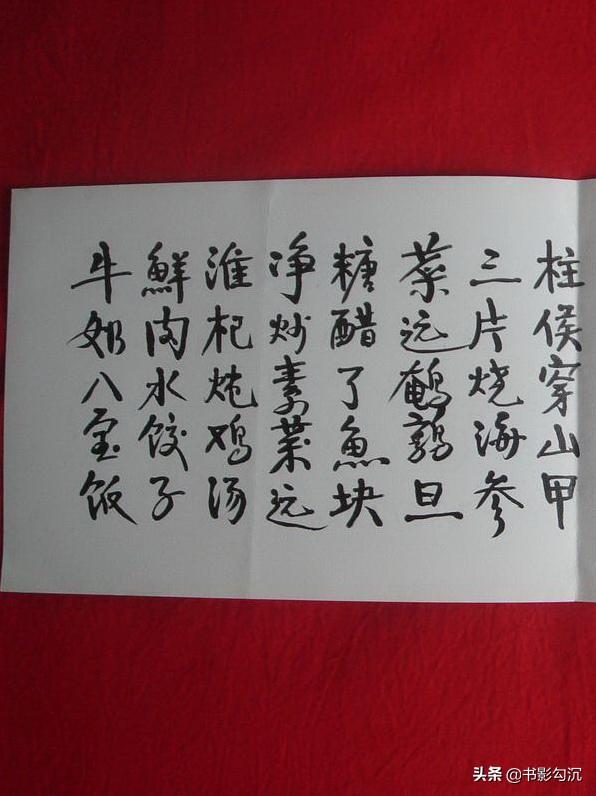 柱侯穿山甲
三片烧海参
菜远鹌鹑旦
糖醋了魚块
净炒素菜远
淮杞炖鸡汤
鮮肉水饺子
牛奶八宝饭
头条 @书影勾沉